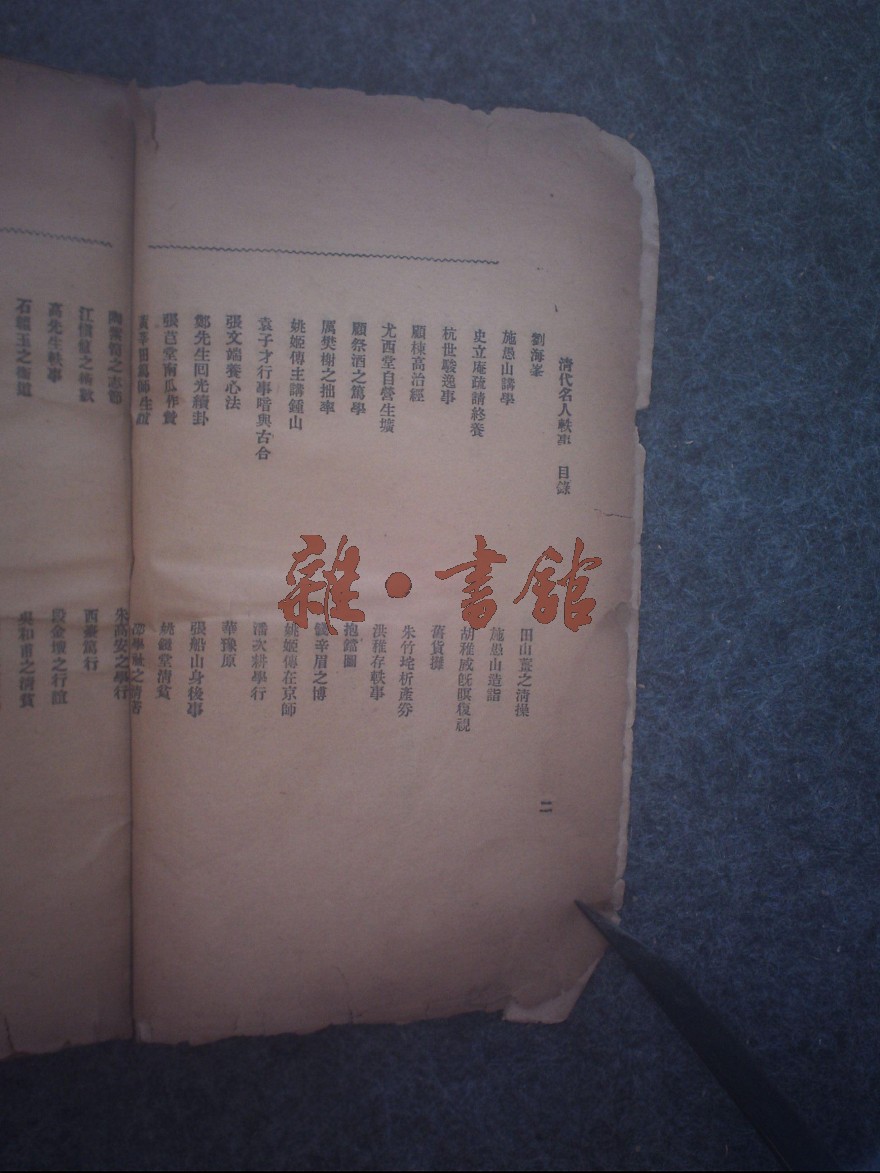 清代名人軼事 目錄
二
劉海峯
施愚山講學
史立庵疏請終養
杭世駿逸事
顧棟高治經
尤西堂自營生壙
顧祭酒之篤學
厲樊榭之拙率
姚姬傳主講鍾山
袁子才行事暗與古合
張文端養心法
鄭先生回光續卦
張芑堂南瓜作贄
黃莘田篤師生誼
之志節
江慎修之
高先生軼事
石琢玉之衛道
田山薑之淸操
施愚山造詣
胡稚威旣瞑復視
舊貨攤
朱竹垞析產券
洪稚存軼事
抱鐺圖
龔辛眉之博
姚姬傳在京師
潘次耕學行
華豫原
張船山身後事
姚鏡堂淸貧
朱高安之學行
西臺篤行
段金壇之行誼
吳和甫之淸貧
雜·書館